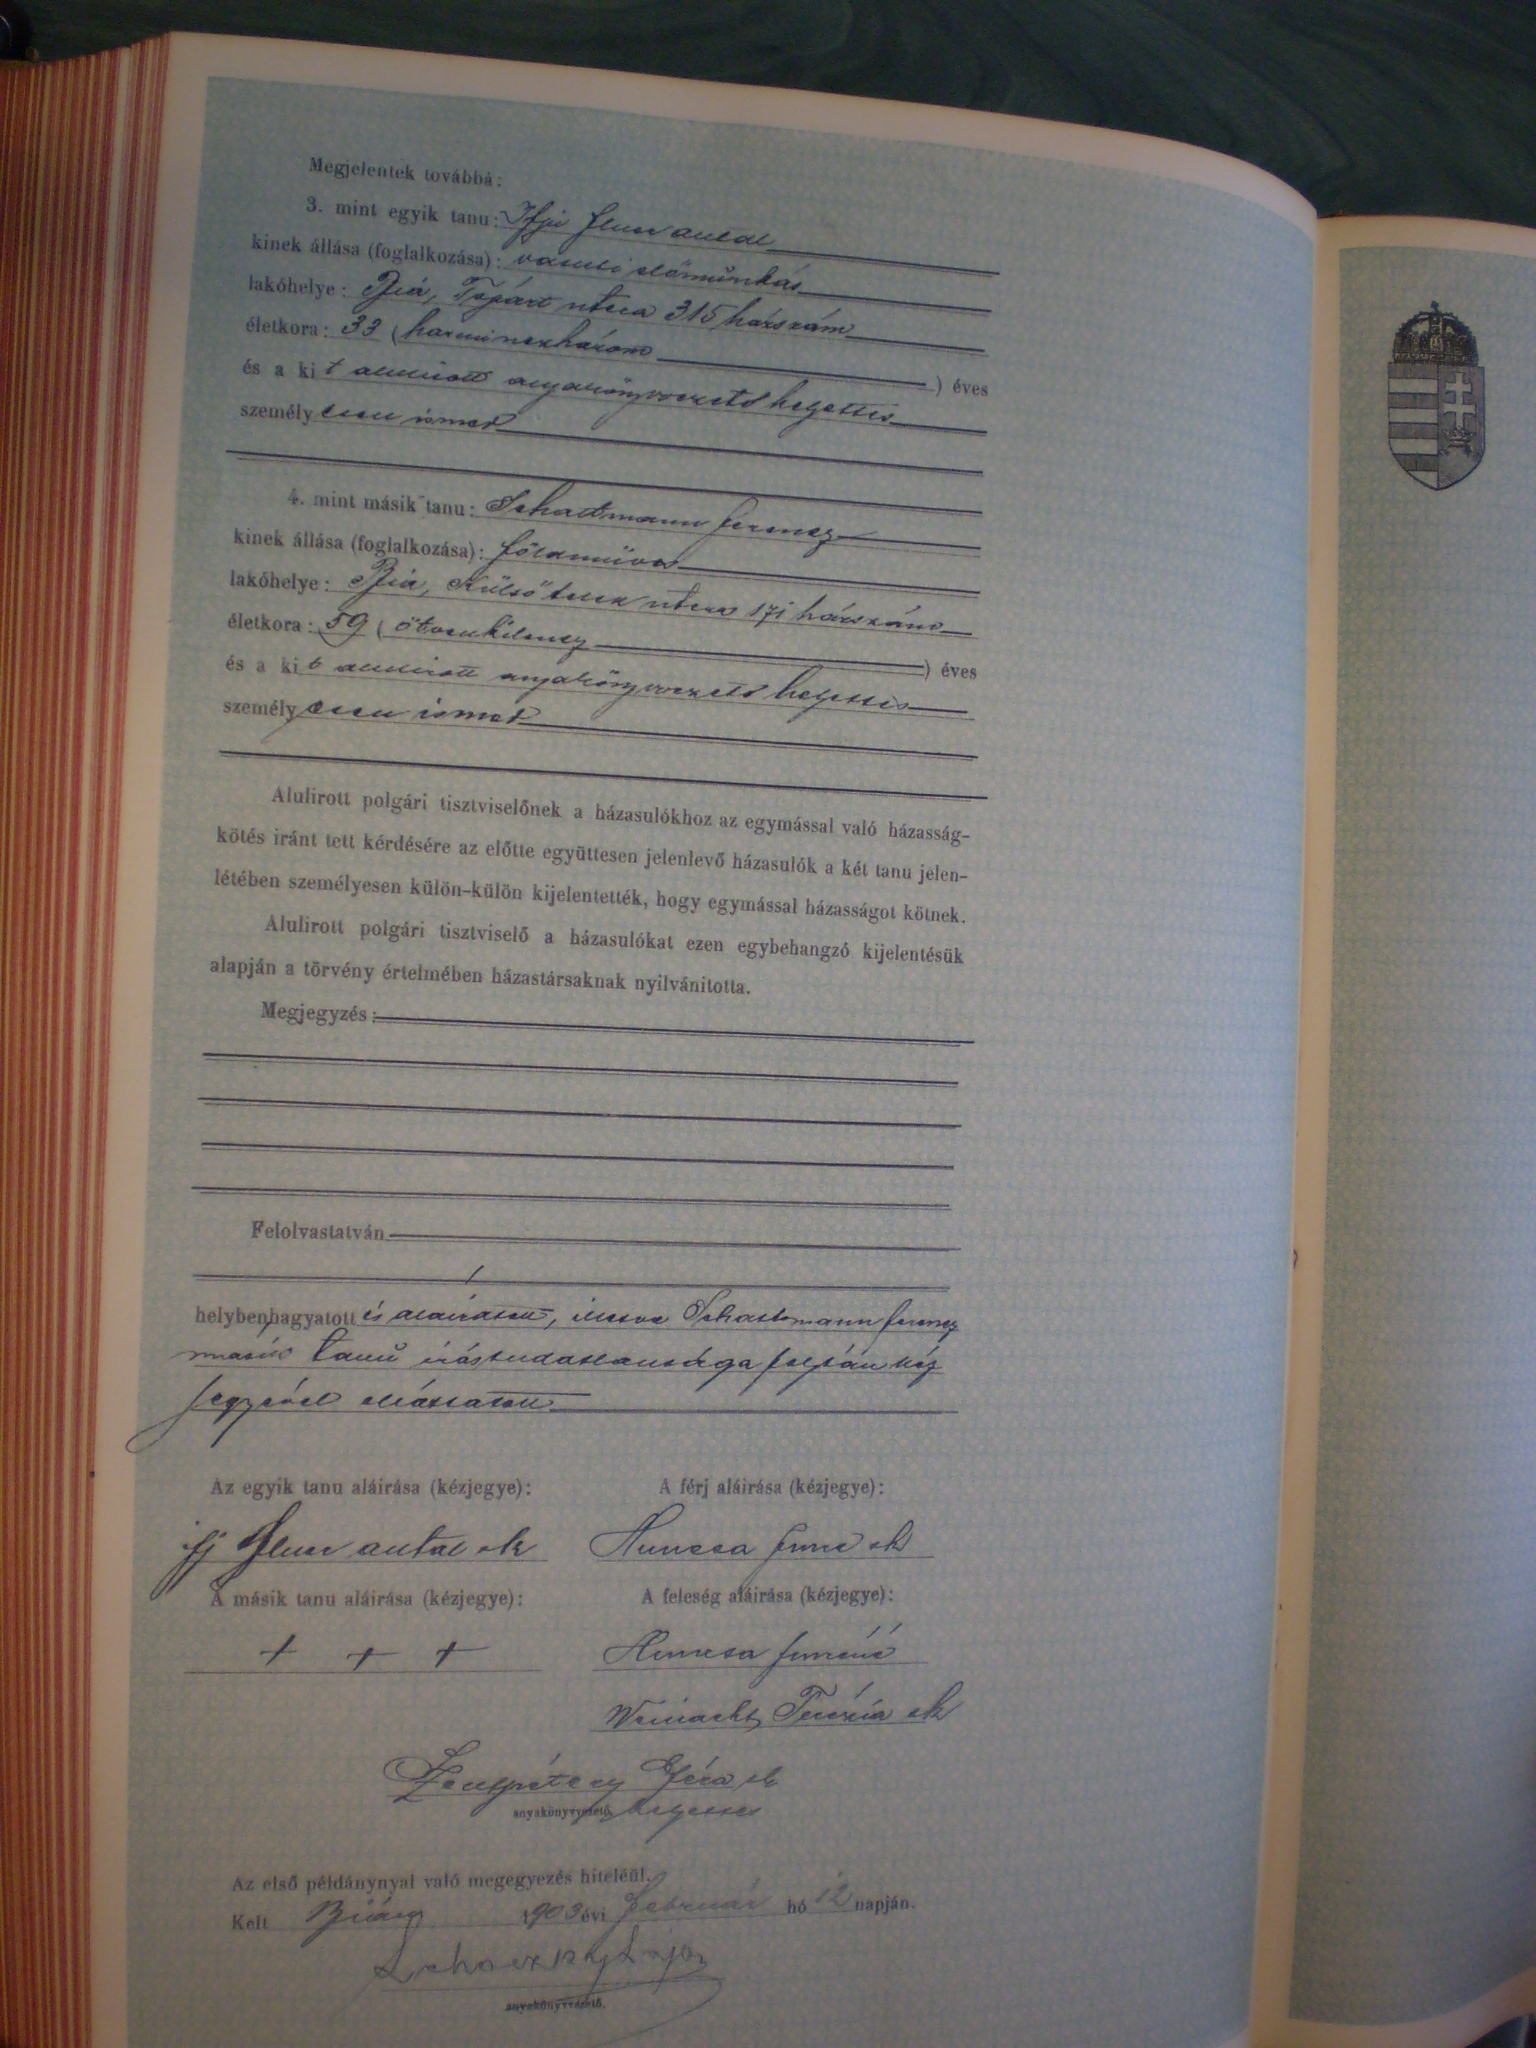 Megjelentek továbbá:
3. mint egyik tanu: Ifju antal
kinek állása (foglalkozása): vasuti előmunkás
lakóhelye: Bia, Tópart utca 315 házszám
életkora: 33 (harminczhárom) éves
és a kit alulirott anyakönyvvezető helyettes
személyesen ismer
4. mint másik tanu: Schattmann Ferencz
kinek állása (foglalkozása): földmüves
lakóhelye: Bia, Külsőtelek utcza 171 házszám
életkora: 59 (ötvenkilencz) éves
és a kit alulirott anyakönyvvezető helyettes
személyesen ismer
Alulirott polgári tisztviselőnek a házasulókhoz az egymással való házasság-
kötés iránt tett kérdésére az előtte együttesen jelenlevő házasulók a két tanu jelen-
létében személyesen külön-külön kijelentették, hogy egymással házasságot kötnek.
Alulirott polgári tisztviselő a házasulókat ezen egybehangzó kijelentésük
alapján a törvény értelmében házastársaknak nyilvánitotta.
Megjegyzés:
Felolvastatván
helybenhagyatott és aláiratott, illetve Schattmann Ferencz
másik tanú írástudatlansága folytán kéz
jegyével elláttatott
Az egyik tanu aláirása (kézjegye): A férj aláirása (kézjegye):
ifj antal sk Huncsa Imre sk
A másik tanu aláirása (kézjegye): A feleség aláirása (kézjegye):
+ + + Huncsa Imréné
Weinacht Terézia sk
Szentpétery Géza sk
anyakönyvvezető helyettes
Az első példánynyal való megegyezés hiteléül.
Kelt Bián 1903 évi február hó 12 napján.
Lajos
anyakönyvvezető.